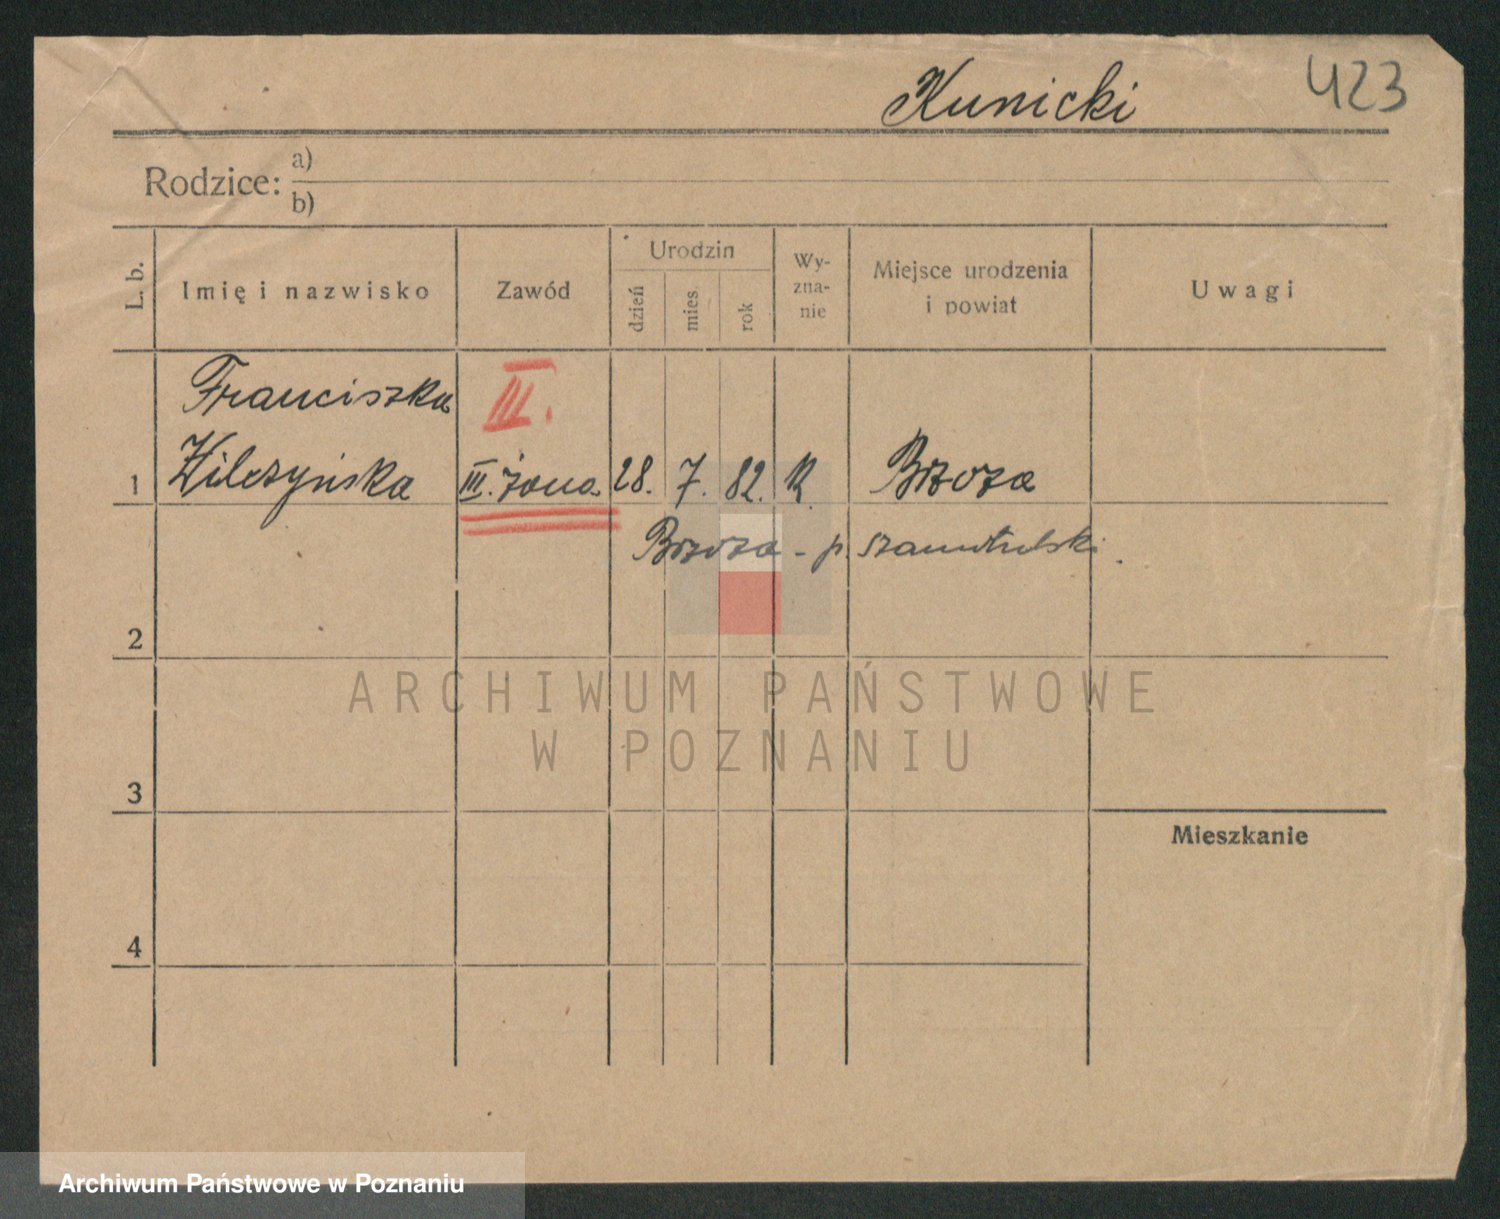 Kunicki 423
Rodzice: a)
b)
L. b. Imię i nazwisko Zawód Urodzin dzień mies. rok Wy-zna-nie Miejsce urodzenia i powiat Uwagi
Franciszka III.
1 Wilczyńska III. żona 28. 7. 82. k. Brzoza
Brzoza - p. szamotulski.
2
ARCHIWUM PAŃSTWOWE
W POZNANIU
3
Mieszkanie
4
Archiwum Państwowe w Poznaniu